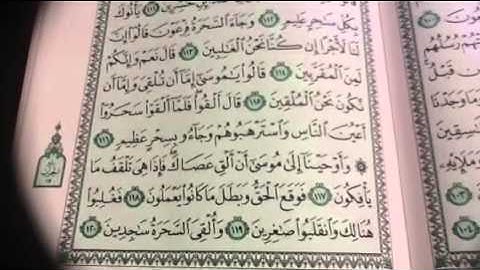 حَٰشِرِينَ ١١١ يَأْتُوكَ
بِكُلِّ سَٰحِرٍ عَلِيمٍ ١١٢ وَجَآءَ ٱلسَّحَرَةُ فِرْعَوْنَ قَالُوٓاْ إِنَّ
لَنَا لَأَجْرًا إِن كُنَّا نَحْنُ ٱلْغَٰلِبِينَ ١١٣ قَالَ نَعَمْ وَإِنَّكُمْ
لَمِنَ ٱلْمُقَرَّبِينَ ١١٤ قَالُواْ يَٰمُوسَىٰٓ إِمَّآ أَن تُلْقِيَ وَإِمَّآ أَن
نَّكُونَ نَحْنُ ٱلْمُلْقِينَ ١١٥ قَالَ أَلْقُواْ فَلَمَّآ أَلْقَوْاْ سَحَرُوٓاْ
أَعْيُنَ ٱلنَّاسِ وَٱسْتَرْهَبُوهُمْ وَجَآءُو بِسِحْرٍ عَظِيمٍ ١١٦
۞ وَأَوْحَيْنَآ إِلَىٰ مُوسَىٰٓ أَنْ أَلْقِ عَصَاكَ فَإِذَا هِيَ تَلْقَفُ مَا
يَأْفِكُونَ ١١٧ فَوَقَعَ ٱلْحَقُّ وَبَطَلَ مَا كَانُواْ يَعْمَلُونَ ١١٨ فَغُلِبُواْ
هُنَالِكَ وَٱنقَلَبُواْ صَٰغِرِينَ ١١٩ وَأُلْقِيَ ٱلسَّحَرَةُ سَٰجِدِينَ ١٢٠
رُسُلُهُم
مِن قَبْلُ
وَمَا وَجَدْنَا
١٠٤